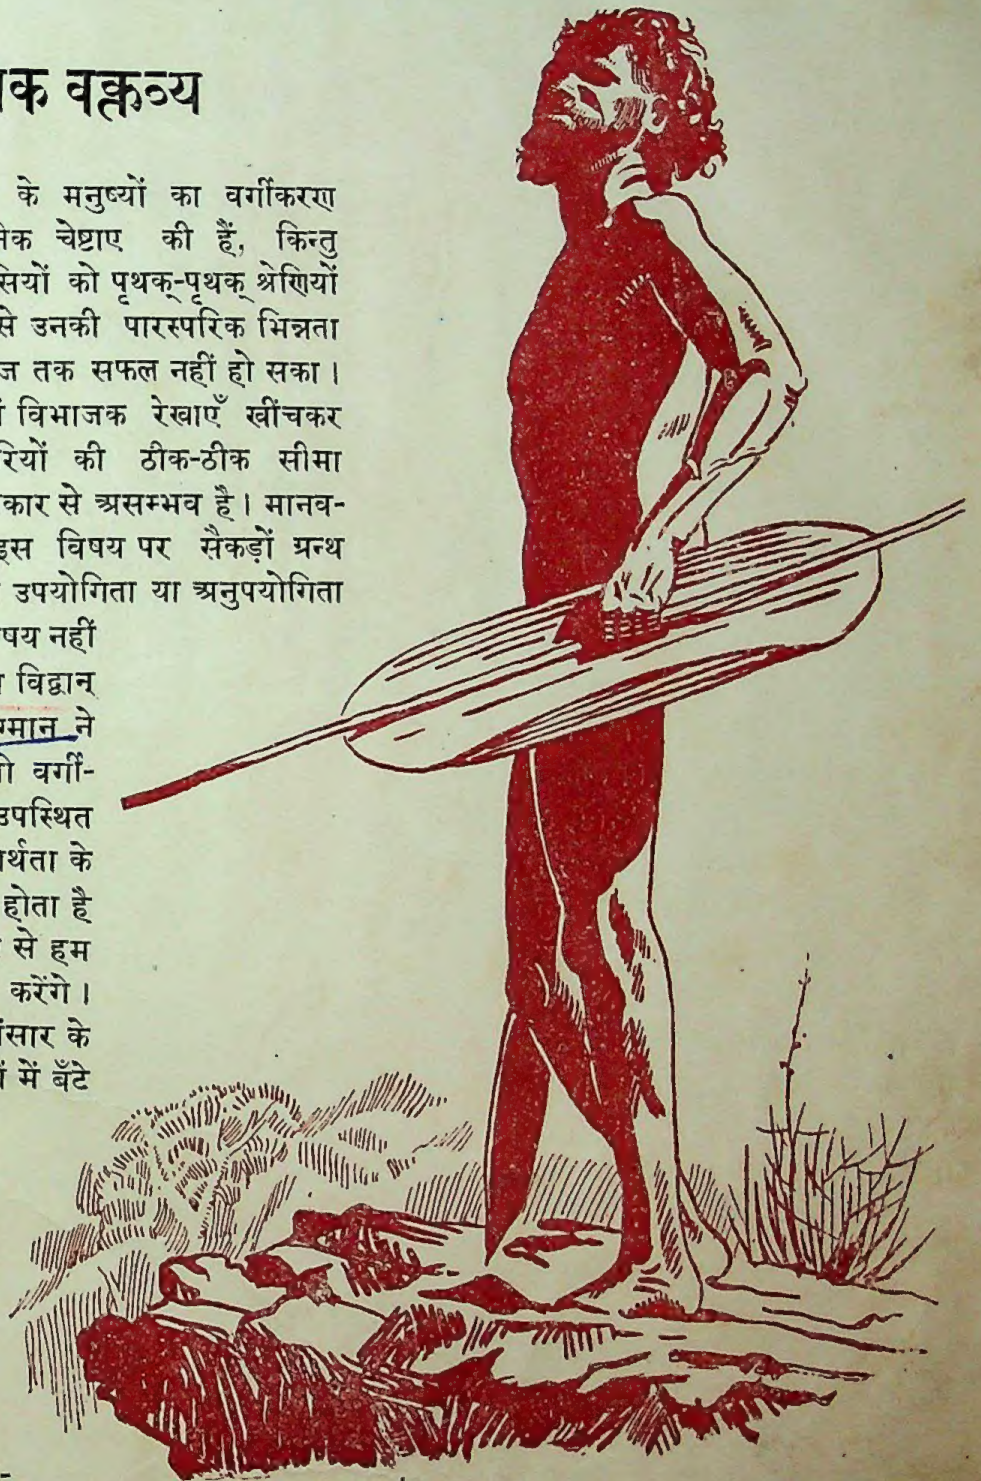 वक्तव्य
के मनुष्यों का वर्गीकरण
चेष्टाए की हैं, किन्तु
को पृथक्-पृथक् श्रेणियों
से उनकी पारस्परिक भिन्नता
तक सफल नहीं हो सका ।
विभाजक रेखाएँ खींचकर
की ठीक-ठीक सीमा
से असम्भव है । मानव-
इस विषय पर सैकड़ों ग्रन्थ
उपयोगिता या अनुपयोगिता
नहीं
विद्वान्
ने
वर्गी-
उपस्थित
के
होता है
से हम
करेंगे ।
के
में बँटे